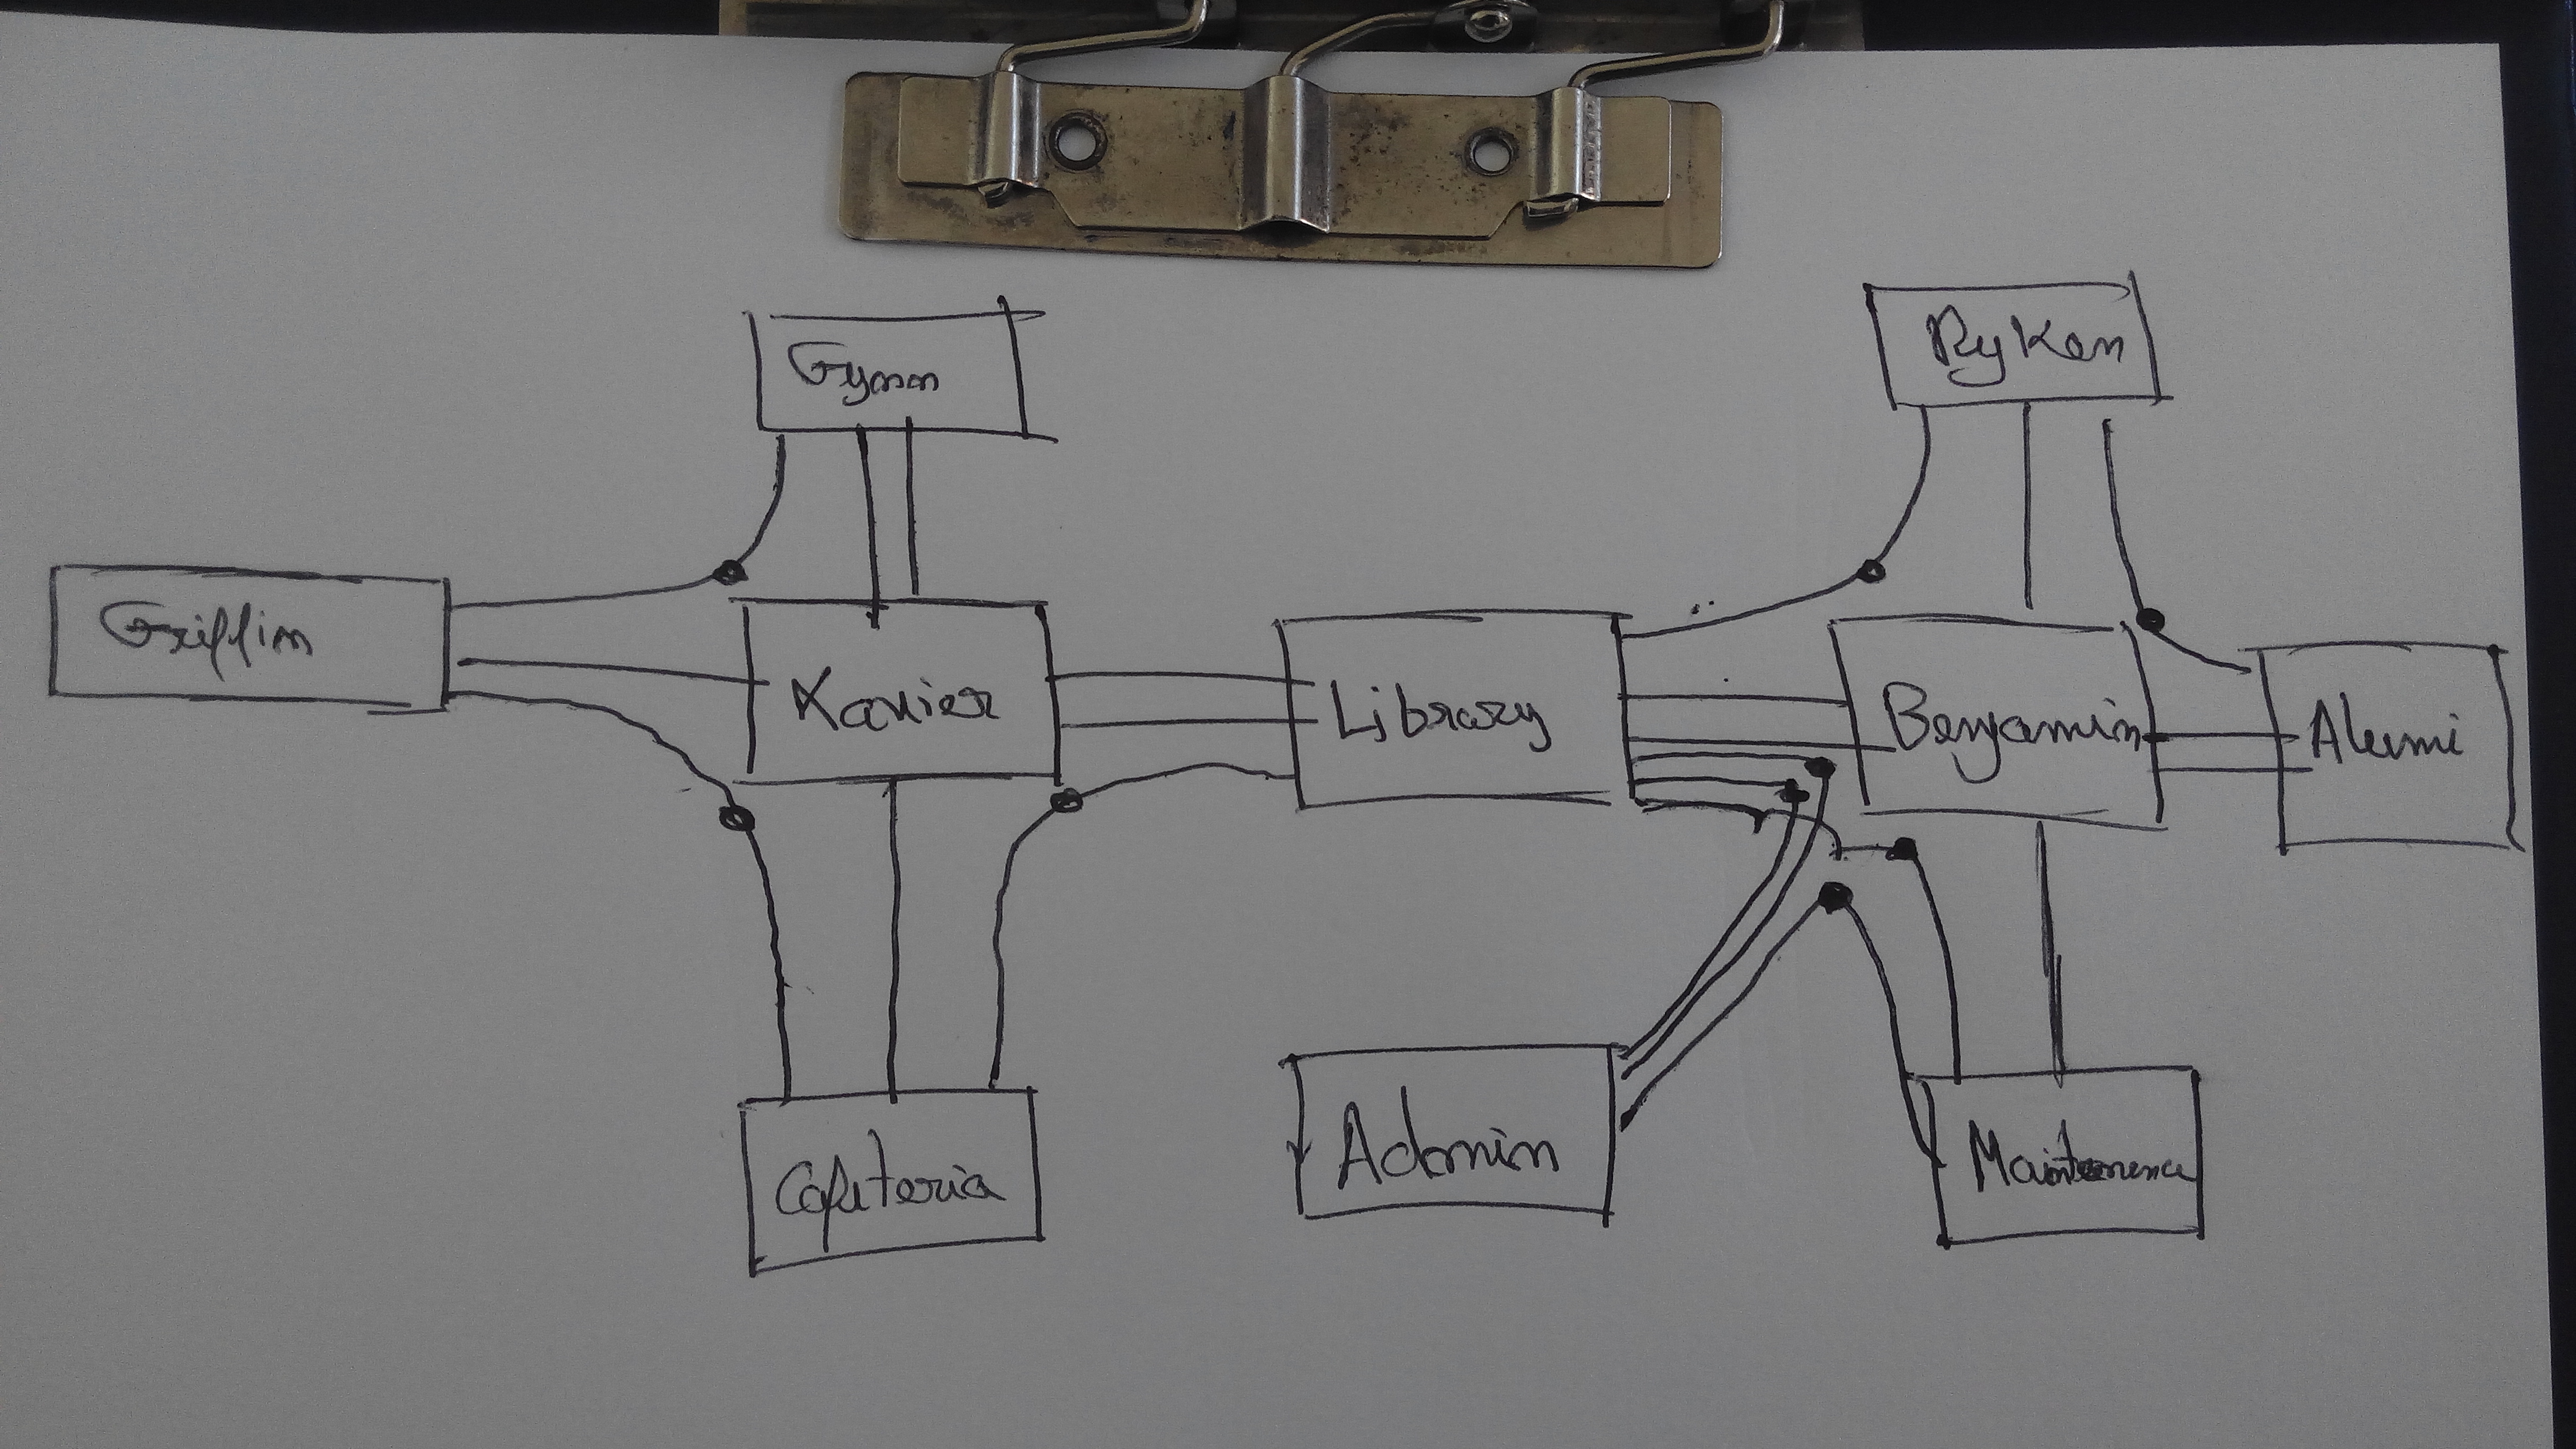 Gymn
Ryken
Griffin
Xavier
Library
Benjamin
Alumi
Cafeteria
Admin
Maintenence